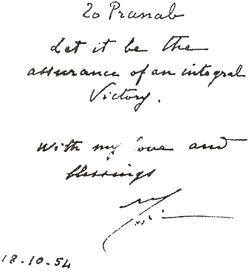 To Pranab
Let it be the
assurance of an integral
Victory.
With my love and
blessings
18-10-54